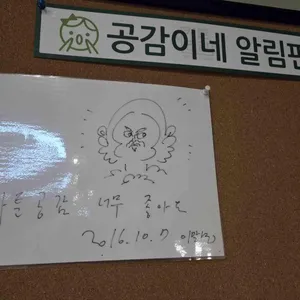 공감이네 알림판
공감 너무 좋아요
2016.10.7